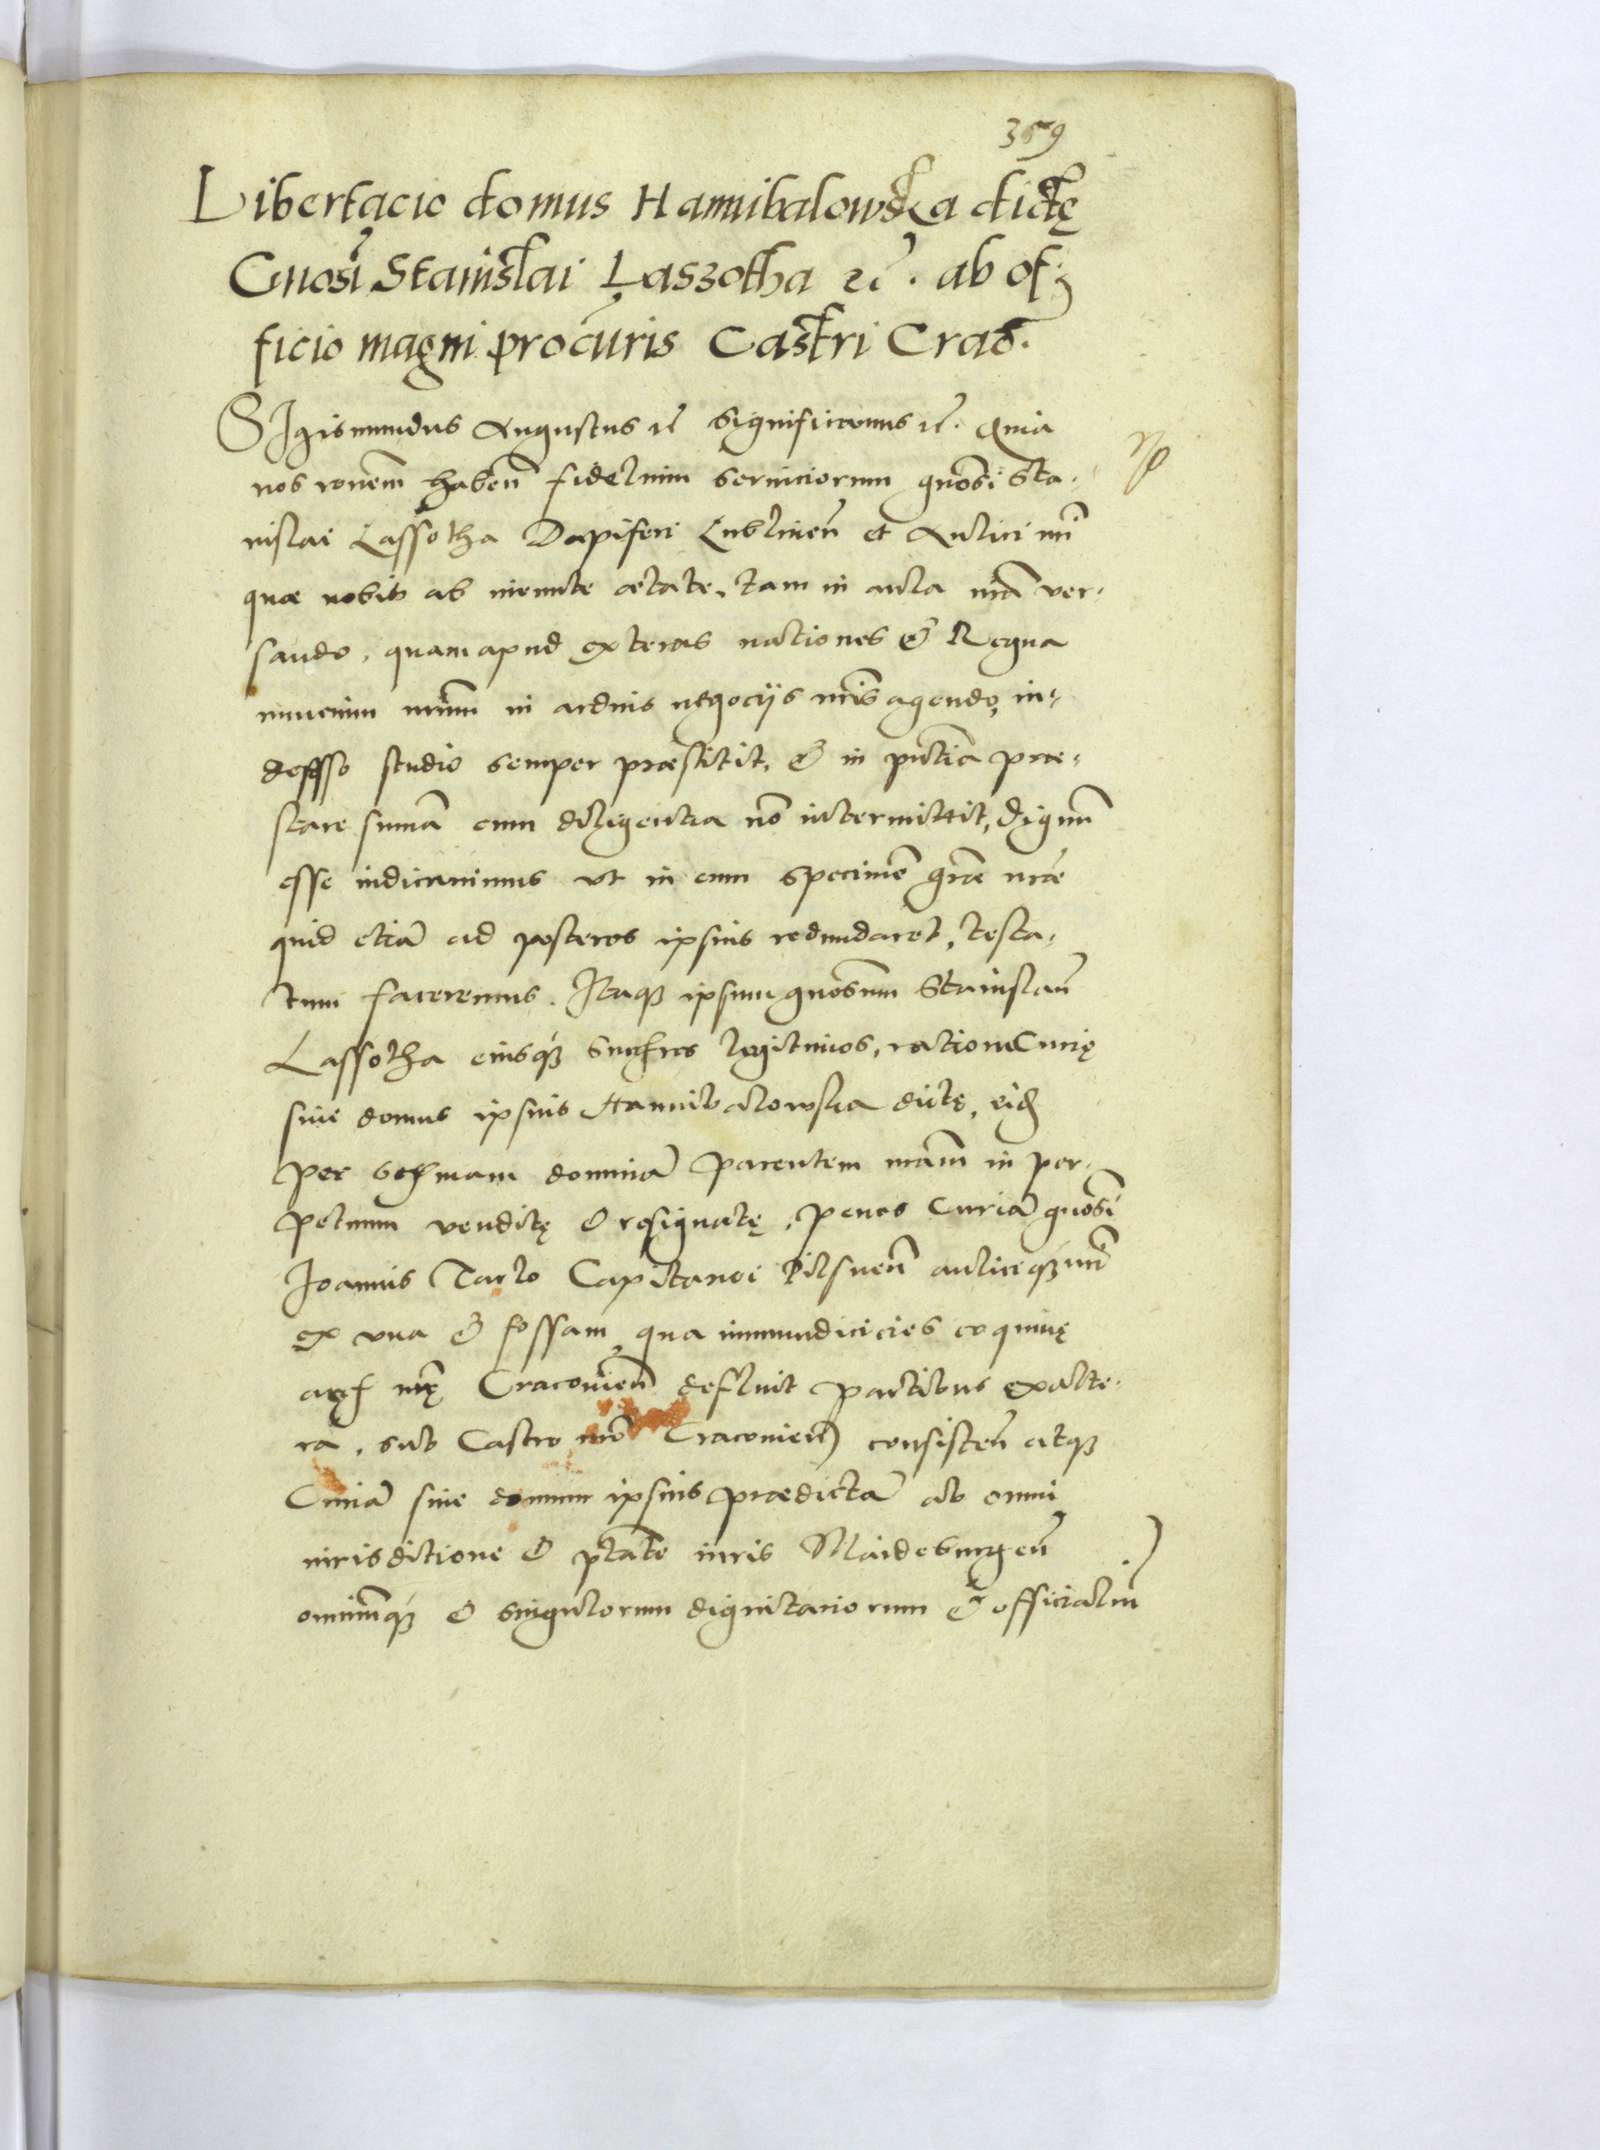 359
Libertacio domus Hannibalowska dictę
Gnosi Stanislai Laszotha etc. ab of-
ficio magni procuris Castri Crac.
SIgismundus Augustus etc significamus etc. Quia
nos ronem haben fidelium serviciorum gnosi Sta-
nislai Lassotha Dapiferi Lublinen et Aulici nri
quæ nobis ab ineunte ætate, tam in aula nra ver-
sando, quam apud exteras nationes & Regna
nrum in arduis negociis nris agendo, in-
defesso studio semper præstitit, & in pntia præ-
stare summa cum diligentia no intermittit, dignum
esse iudicavimus ut in eum specimen græ nræ
quid etia ad posteros ipsius redundaret, testa-
tum faceremus. Itaque ipsum gnosum Stanislaum
Lassotha eiusque succres legitimos, ratione Curię
sive domus ipsius Hannibalowska dictę, eid
per sermam domina parentem nram in per-
petuum venditę & resignatę, penes Curia gnosi
Joannis Tarlo Capitanei Pilsnen aulicique nri
ex una & fossam, qua immundicicies coquinę
arcis nrę Cracovien defluit partibus ex alte-
ra, sub Castro nro Cracovien consisten atque
Curia sive domum ipsius prædicta ab omni
iurisditione & ptate iuris Maideburgen
omniumque & singulorum dignitariorum & officialium